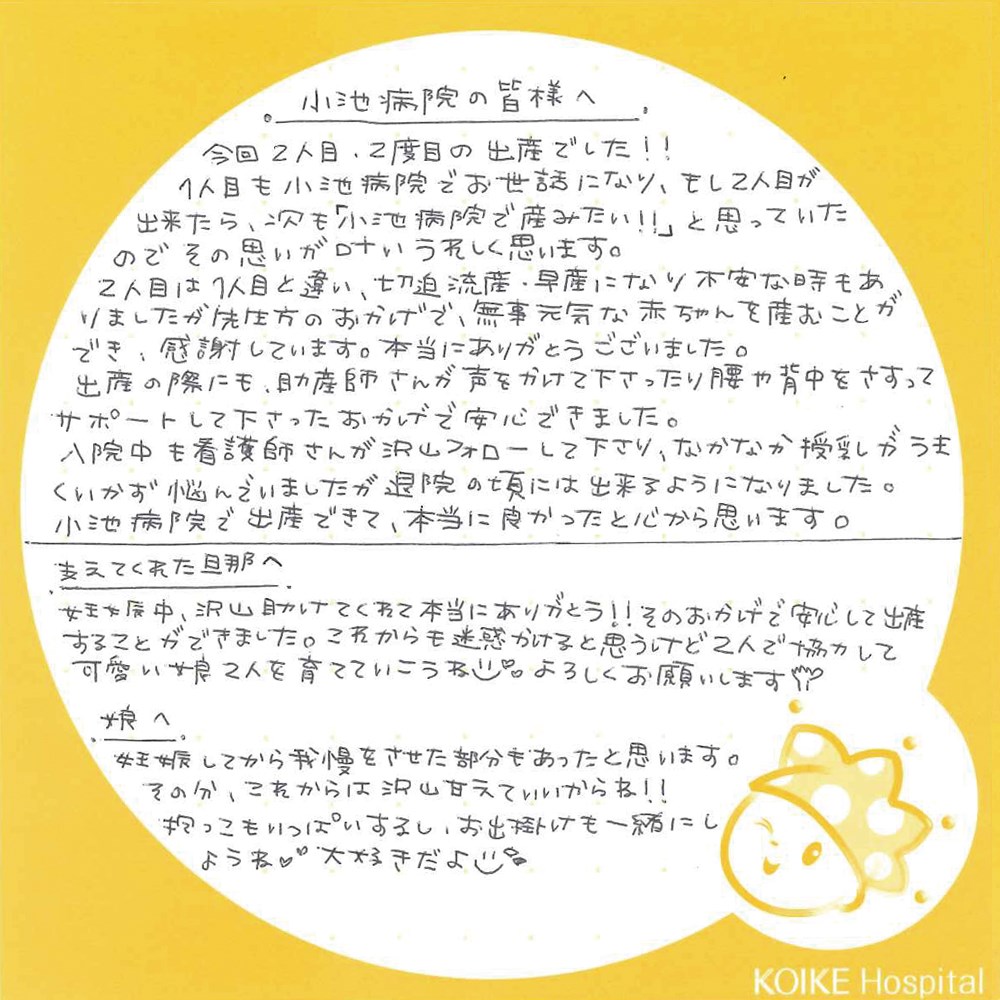 小池病院の皆様へ
今回2人目、2度目の出産でした!!
1人目も小池病院でお世話になり、もし2人目が
出来たら、次も「小池病院で産みたい!!」と思っていた
のでその思いが叶いうれしく思います。
2人目は1人目と違い、切迫流産・早産になり不安な時もあ
りましたが先生方のおかげで、無事元気な赤ちゃんを産むことが
でき、感謝しています。本当にありがとうございました。
出産の際にも、助産師さんが声をかけて下さったり腰や背中をさすって
サポートして下さったおかげで安心できました。
入院中も看護師さんが沢山フォローして下さり、なかなか授乳がうま
くいかず悩んでいましたが退院の頃には出来るようになりました。
小池病院で出産できて、本当に良かったと心から思います。
支えてくれた旦那へ
妊娠中、沢山助けてくれて本当にありがとう!!そのおかげで安心して出産
することができました。これからも迷惑かけると思うけど2人で協力して
可愛い娘2人を育てていこうね よろしくお願いします
娘へ
妊娠してから我慢をさせた部分もあったと思います。
その分、これからは沢山甘えていいからね!!
抱っこもいっぱいするし、お出掛けも一緒にし
ようね♡♡ 大好きだよ
KOIKE Hospital